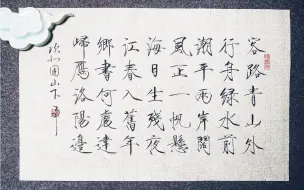 客路青山外
行舟綠水前
潮平兩岸闊
風正一帆懸
海日生殘夜
江春入舊年
鄉書何處達
歸雁洛陽邊
次北固山下